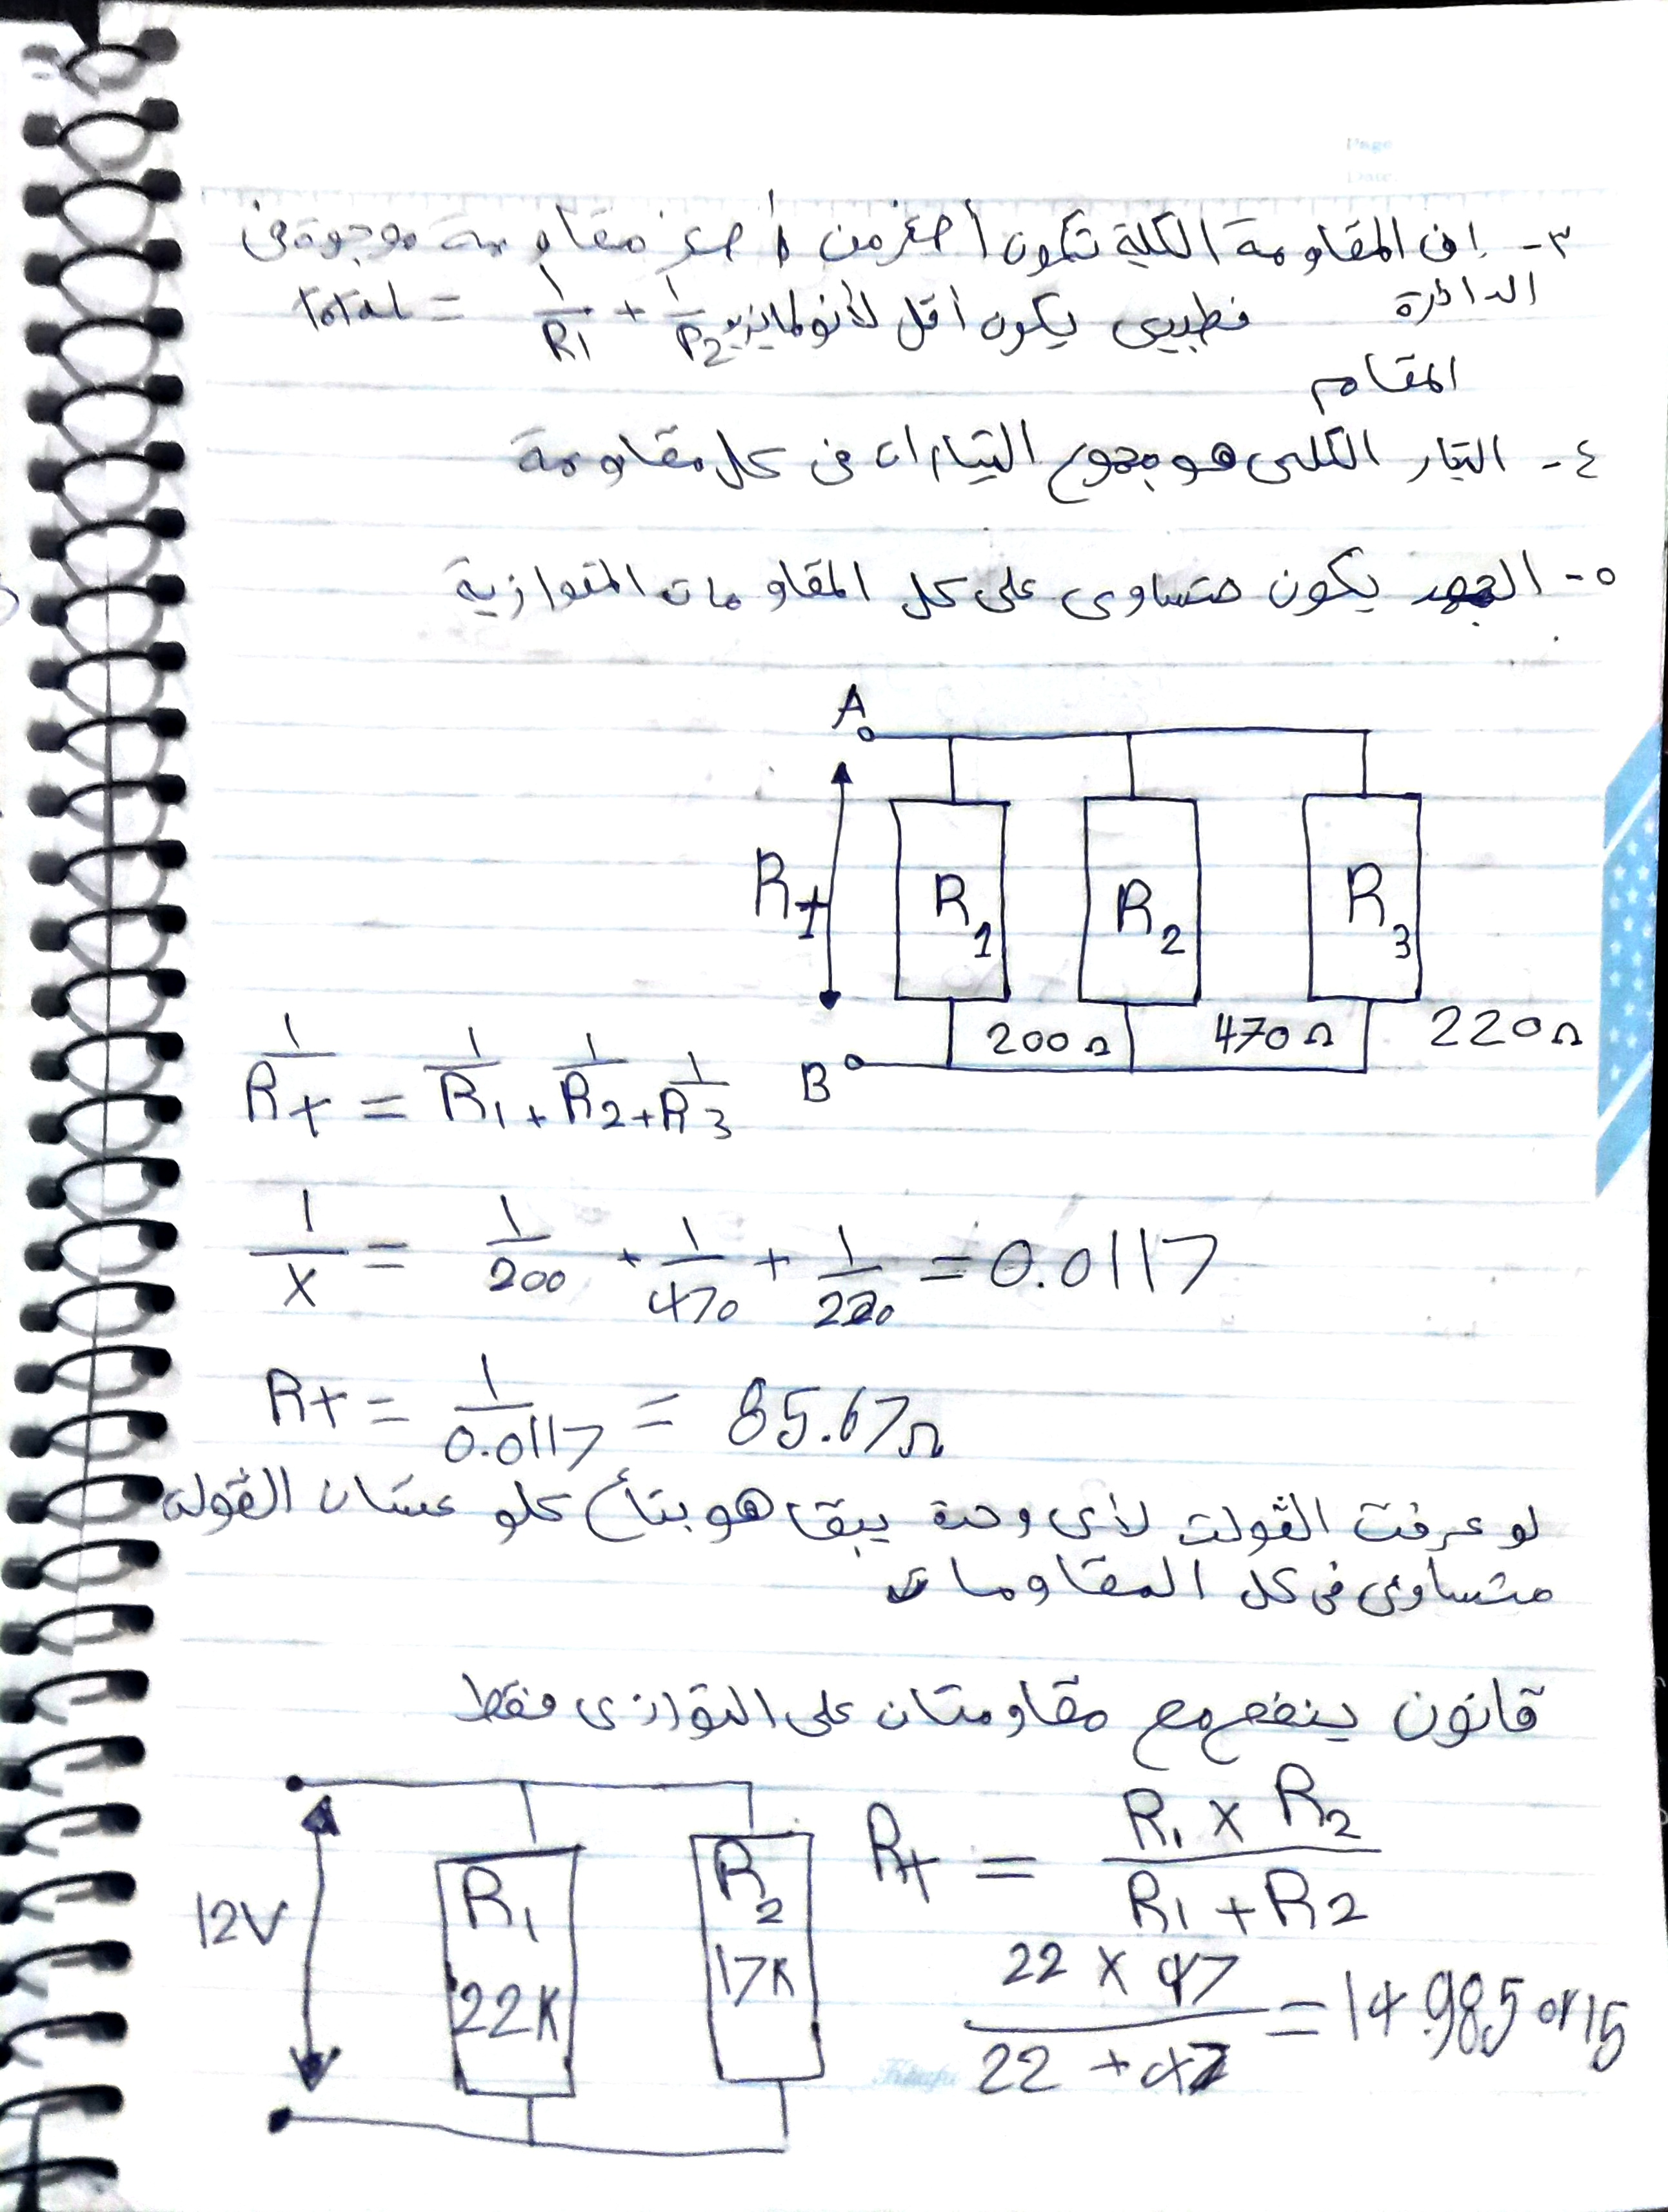 Page
Date:
٣- إن المقاومة الكلية تكون أصغر من أصغر مقاومة موجودة فى
الدائرة فطبيعى يكون أقل لأنو لمايزيد 1/R1 + 1/R2 = total
المقام
٤- التيار الكلى هو مجموع التيارات فى كل مقاومة
٥- الجهد يكون متساوى على كل المقاومات المتوازية
A
Rt R1 R2 R3
200Ω 470Ω 220Ω
B
1/Rt = 1/R1 + 1/R2 + 1/R3
1/X = 1/200 + 1/470 + 1/220 = 0.0117
Rt = 1/0.0117 = 85.67Ω
لو عرفت الڤولت لأى وحدة يبقى هو بتاع كلو عشان الڤولت
متساوى فى كل المقاومات
قانون ينفع مع مقاومتان على التوازى فقط
12V R1 22K R2 17K
Rt = R1 X R2 / R1 + R2
22 X 47 / 22 + 47 = 14.985 or 15